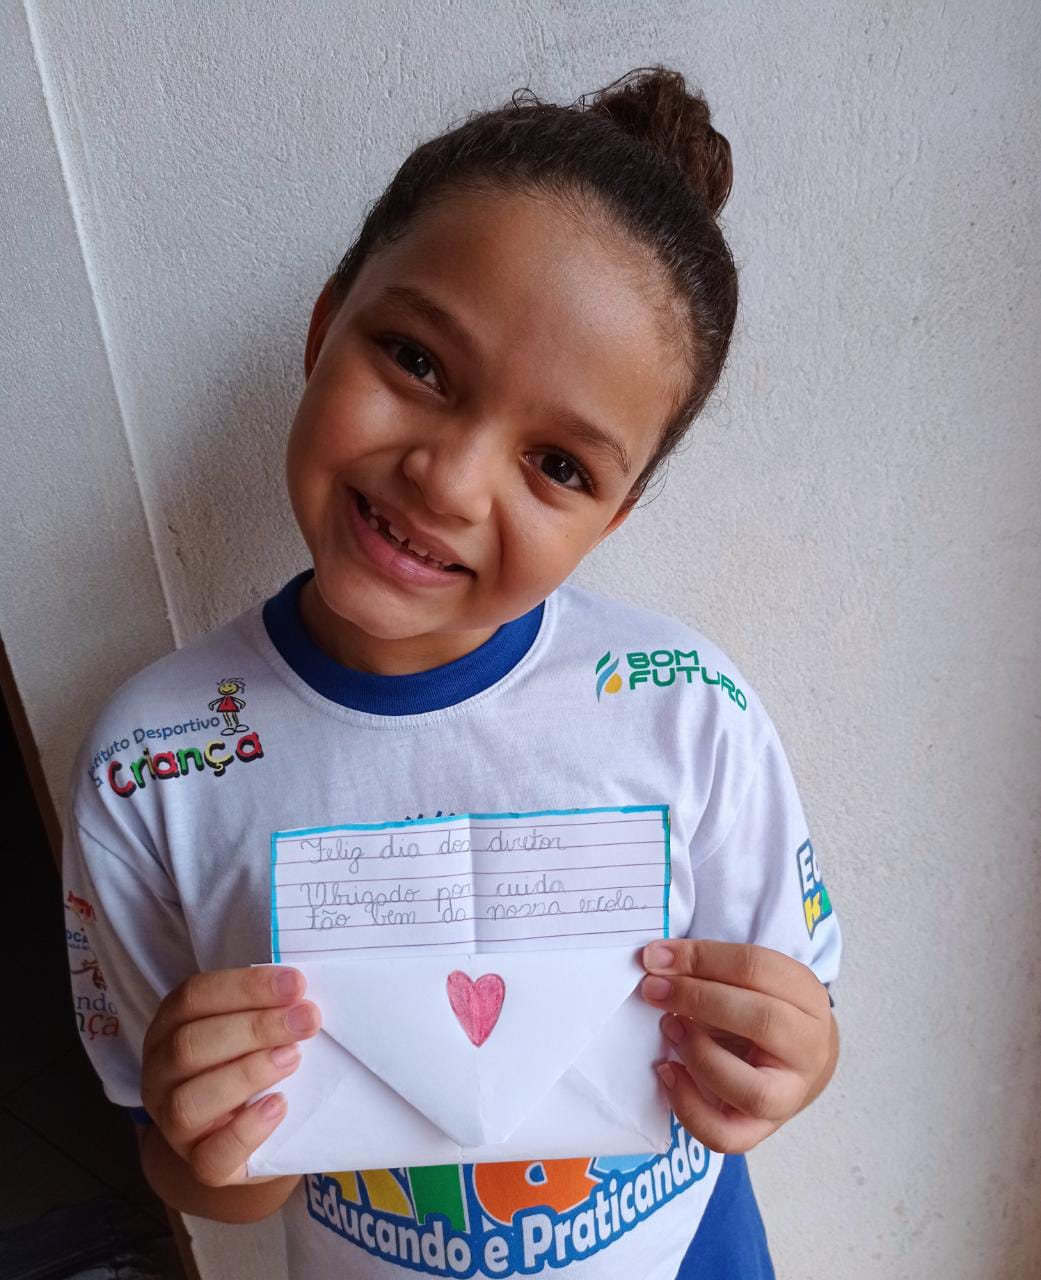 Instituto Desportivo
da Criança
BOM
FUTURO
Feliz dia dos diretor
Obrigado por cuida
tão bem da nossa escola.
Educando e Praticando